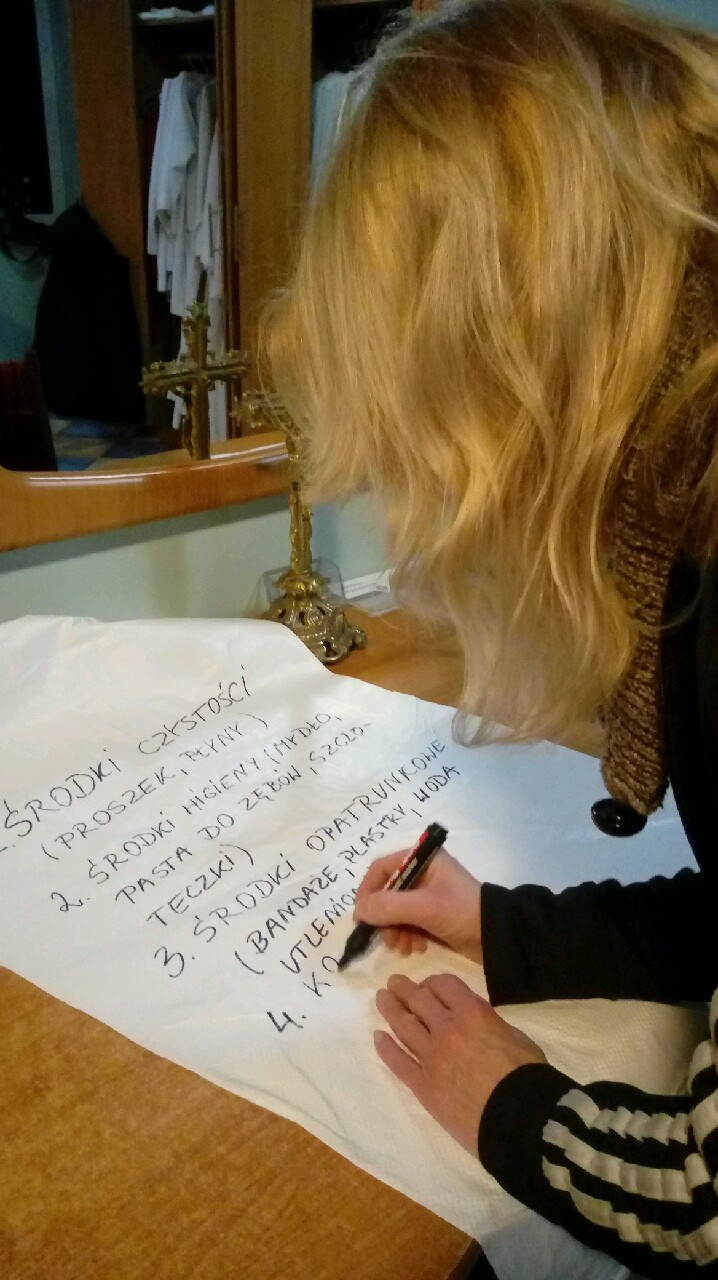 1. ŚRODKI CZYSTOŚCI
(PROSZEK, PŁYNY)
2. ŚRODKI HIGIENY (MYDŁO,
PASTA DO ZĘBÓW, SZCZO-
TECZKI)
3. ŚRODKI OPATRUNKOWE
(BANDAŻE, PLASTRY, WODA
UTLENION
4. KO